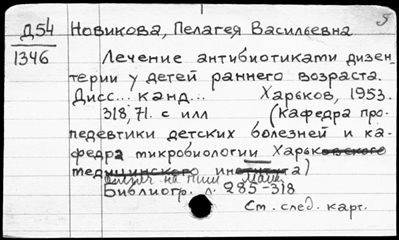 Д54 Новикова, Пелагея Васильевна
1346
Лечение антибиотиками дизен-
терии у детей раннего возраста.
Дисс... канд... Харьков, 1953.
318, 71. с илл (Кафедра про-
педевтики детских болезней и ка-
федра микробиологии Харьковского
медицинского института)
Библиогр. л. 285-318
См. след. карт.